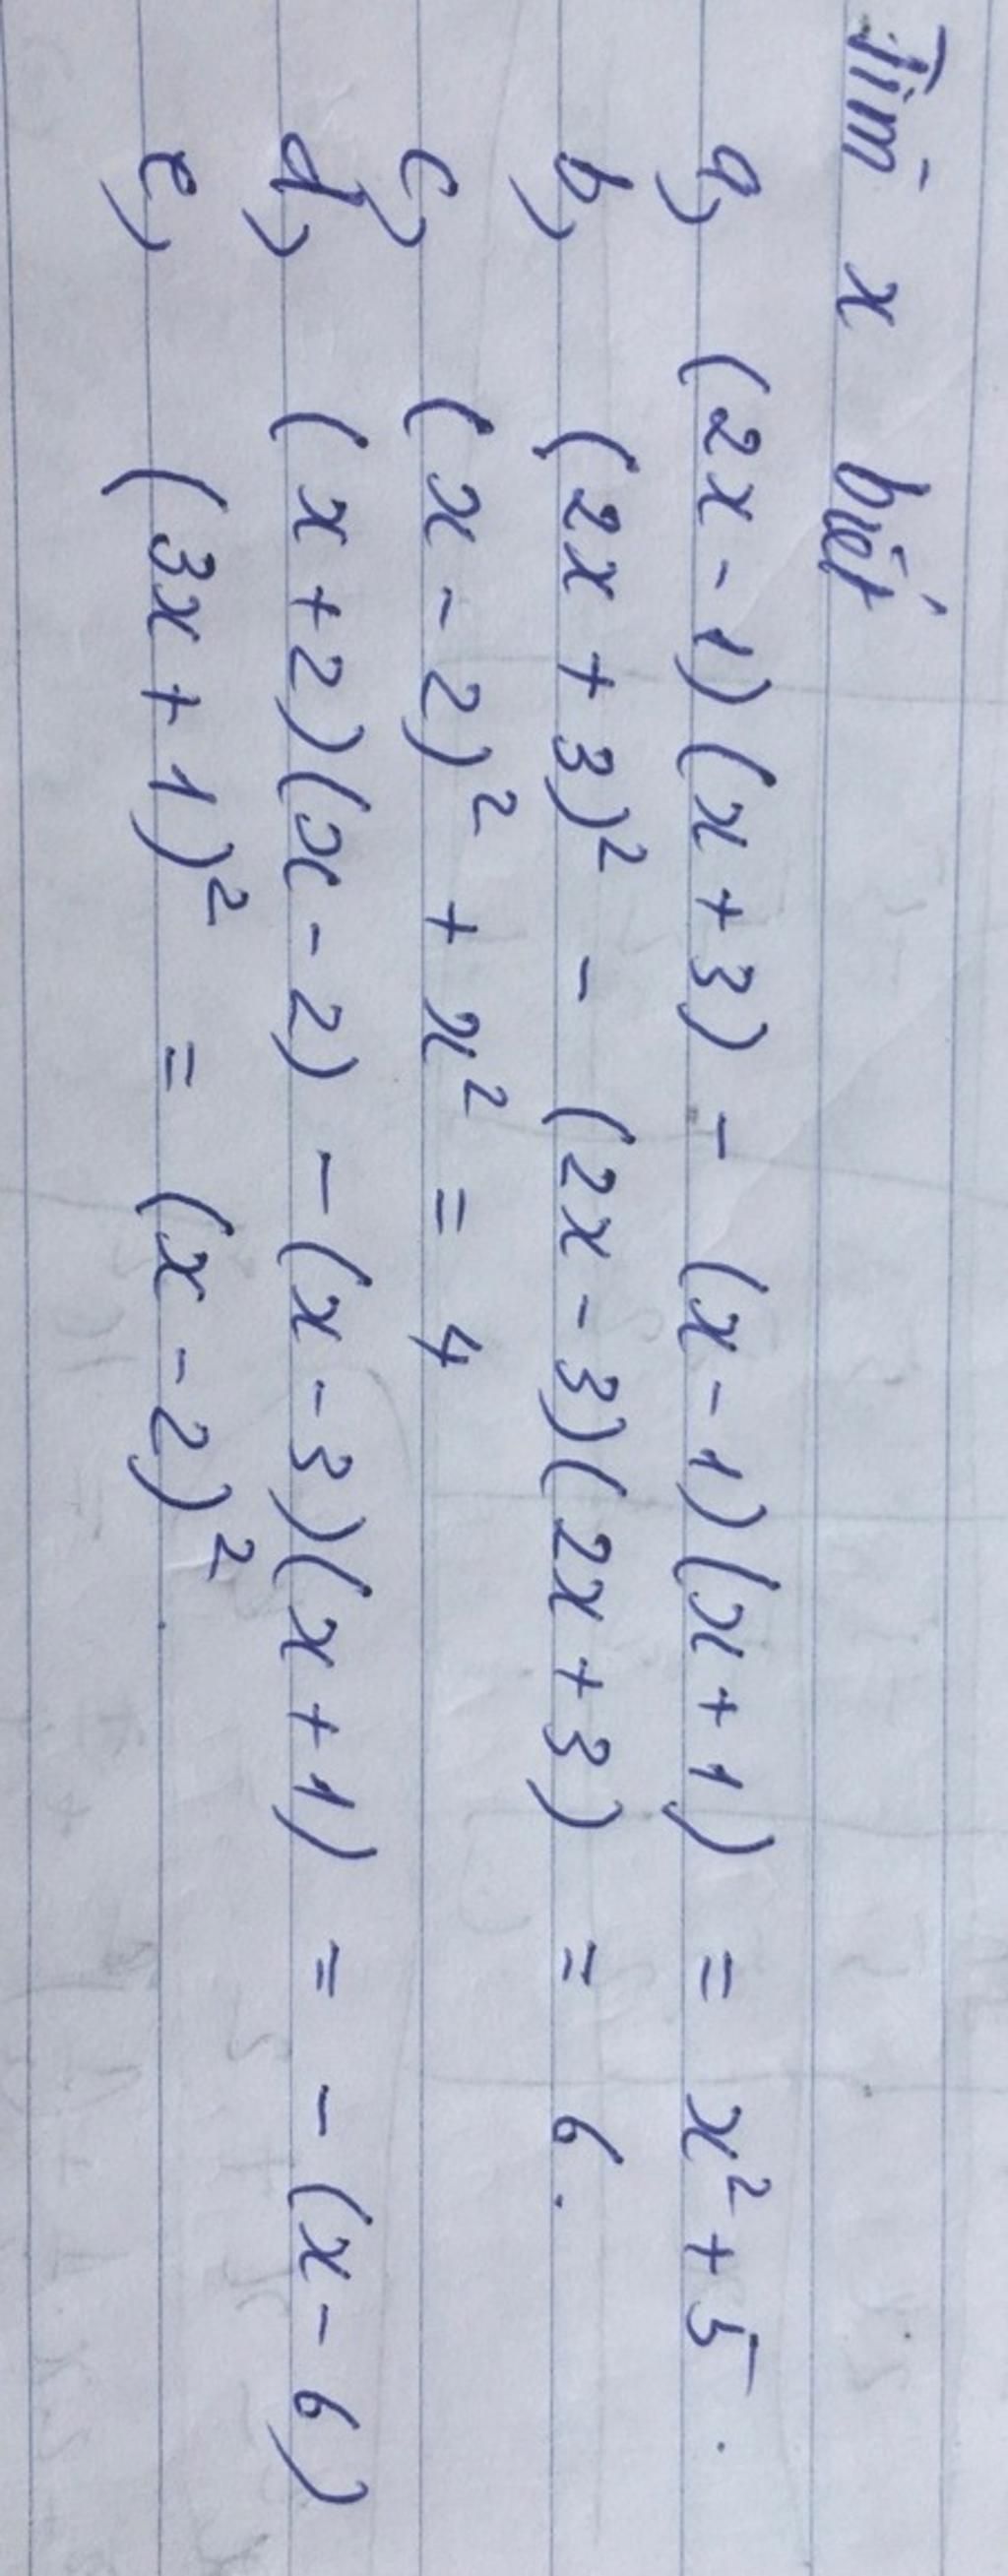 Tìm x biết
a, (2x - 1)(x + 3) - (x - 1)(x + 1) = x² + 5.
b, (2x + 3)² - (2x - 3)(2x + 3) = 6.
c, (x - 2)² + x² = 4
d, (x + 2)(x - 2) - (x - 3)(x + 1) = - (x - 6)
e, (3x + 1)² = (x - 2)².